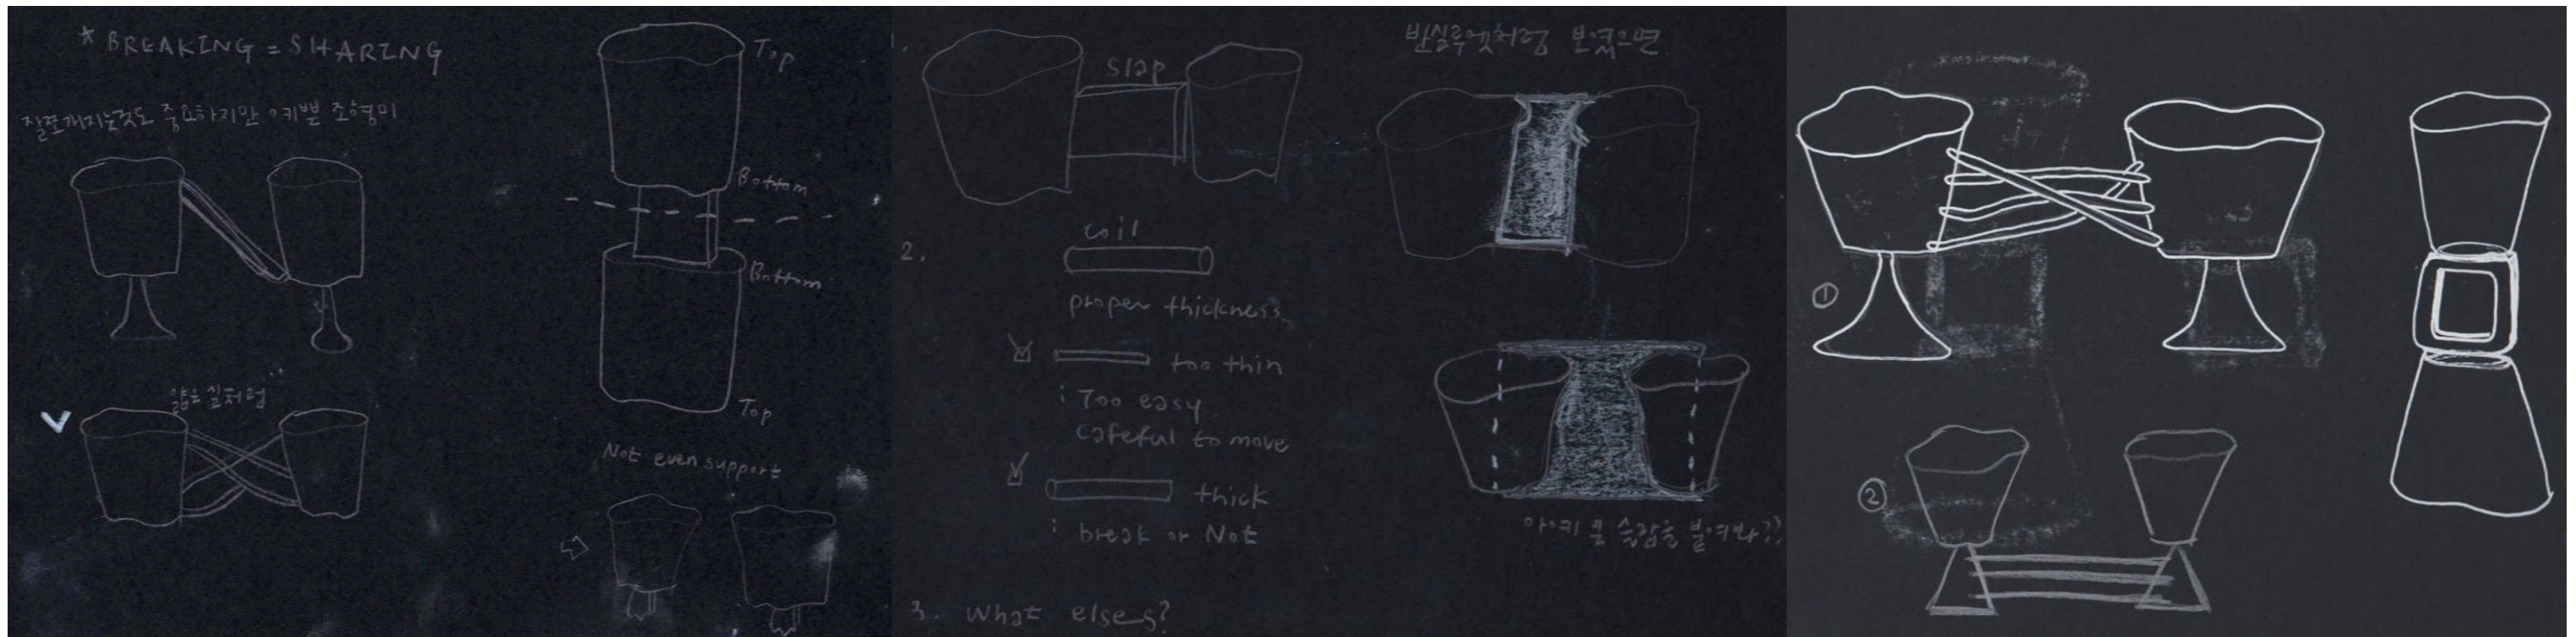 * BREAKING = SHARING
잘쪼개지는것도 중요하지만 예쁜 조형미
얇은 실처럼..
Top
Bottom
Bottom
Top
Not even support
1.
slap
2.
coil
proper thickness
too thin
: Too easy
careful to move
thick
: break or Not
3. What elses?
반실루엣처럼 보였으면
아예 큰 슬랍을 붙여봐??
①
②